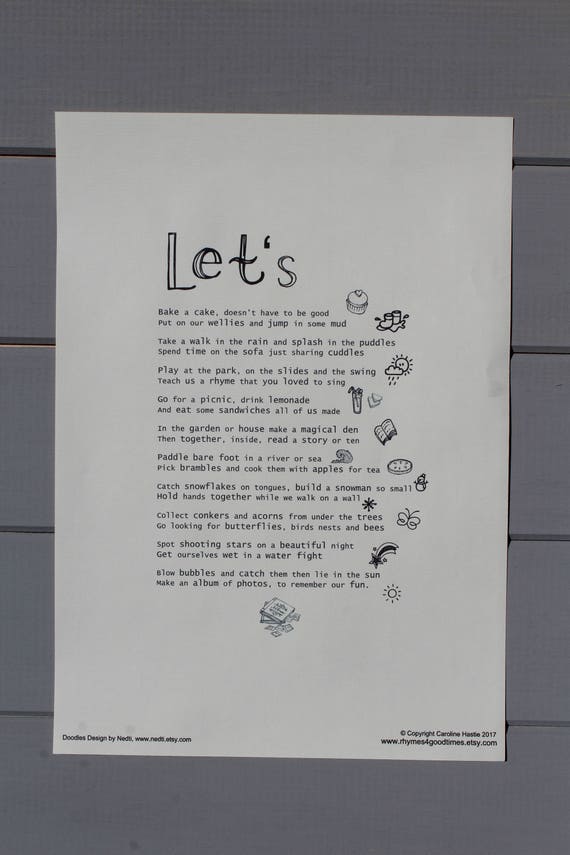 Let's
Bake a cake, doesn't have to be good
Put on our wellies and jump in some mud
Take a walk in the rain and splash in the puddles
Spend time on the sofa just sharing cuddles
Play at the park, on the slides and the swing
Teach us a rhyme that you loved to sing
Go for a picnic, drink lemonade
And eat some sandwiches all of us made
In the garden or house make a magical den
Then together, inside, read a story or ten
Paddle bare foot in a river or sea
Pick brambles and cook them with apples for tea
Catch snowflakes on tongues, build a snowman so small
Hold hands together while we walk on a wall
Collect conkers and acorns from under the trees
Go looking for butterflies, birds nests and bees
Spot shooting stars on a beautiful night
Get ourselves wet in a water fight
Blow bubbles and catch them then lie in the sun
Make an album of photos, to remember our fun.
Doodles Design by Nedti, www.nedti.etsy.com
© Copyright Caroline Hastie 2017
www.rhymes4goodtimes.etsy.com